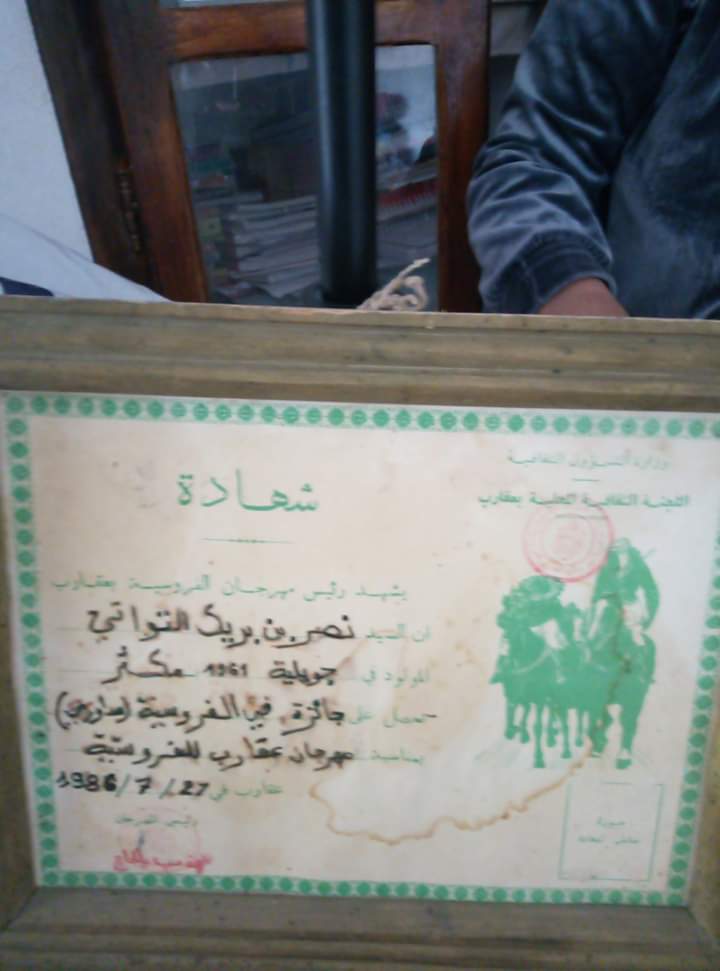 وزارة الشؤون الثقافية
اللجنة الثقافية المحلية بعقارب
شهادة
يشهد رئيس مهرجان الفروسية بعقارب
ان السيد نصر بن بريك التواتي
المولود في جويلية 1961 مكثر
تحصل على جائزة في الفروسية
بمناسبة مهرجان عقارب للفروسية
عقارب في 27 / 7 / 1986
رئيس المهرجان
صورة